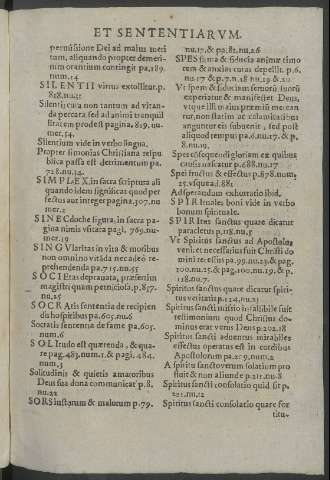 ET SENTENTIARVM.
permissione Dei ad malus meri
tum, aliquando propter demeri-
nim orantium contingit pa.189.
num.14
SILENTII virtus extollitur.p.
818.nu.31
Silentij cura non tantum ad vitan-
da peccata sed ad animi tranquil
litatem prodest pagina. 819. nu-
mer.34.
Silentium vide in verbo lingua.
Propter simonias Christiana respu
blica passa est detrimentum pa.
728.nu.14.
SIMPLEX, in sacra scriptura ali
quando idem significat quod per
fectus aut integer pagina.307.nu
mer.2
SINECdoche figura, in sacra pa-
gina nimis visitata pagi. 769.nu-
mer.19
SINGVlaritas in vita & moribus
non omnino vitãda nec adeò re-
prehendenda pa.715.nu.55
SOCIEtas deprauata, præsenim
magistri quam perniciosa.p.837.
nu.25
SOCRAtis sententia de recipien
dis hospitibus pa.605.nu.6
Socratis sententia de fame pa.605.
num.6
SOLItudo est quærenda, & qua-
re pag.483.num.1.& pagi. 484.
num.3
Solitudinis & quietis amatoribus
Deus sua dona communicat p.8.
nu.22
SORS iustorum & malorum p.79.
nu.17.& pa.81.nu.26
SPES firma & fiducia animæ timo
rem & anxias curas depellit. p.6.
nu.17 & p.7.n.18 nu.19 & nu.20
Vt spem & fiduciam seruorũ suorũ
experiatur & manifestet Deus,
vtque illi eius præmiũ merean
tur, non statim ac calamitatibus
anguntur eis subuenit, sed post
aliquod tempus pa.6.nu.17. & p.
8.nu.19.
Spes cõsequendi gloriam ex quibus
causis nascatur p.688.nu.17
Spei fructus & effectus p.878.num.
25.vsque.i.881
Ad spernendam exhortatio ibid.
SPIRItuales boni vide in verbo
bonum spirituale.
SPIRItus sanctus quare dicatur
paracletus p.118.nu.5
Vt Spiritus sanctus ad Apostolos
veniret necessarius fuit Christi do
mini recessus pa.99.nu.23.& pag.
100.nu.25.& pag.100.nu.29. & p.
118.nu.7.
Spiritus sanctus quare dicatur spiri-
tus veritatis p.124.nu.21
Spiritus sancti missio infalibile fuit
testimonium quod Christus do-
minus erat verus Deus p.202.18
Spiritus sancti aduentus mirabiles
effectus operatus est in cordibus
Apostolorum pa.219.num.2
A spiritu sancto verum solatium pro
fluit & non aliunde p.211.nu.8
Spiritus sancti consolatio quid sit p.
221.nu.12
Spiritus sancti consolatio quare for
titu-